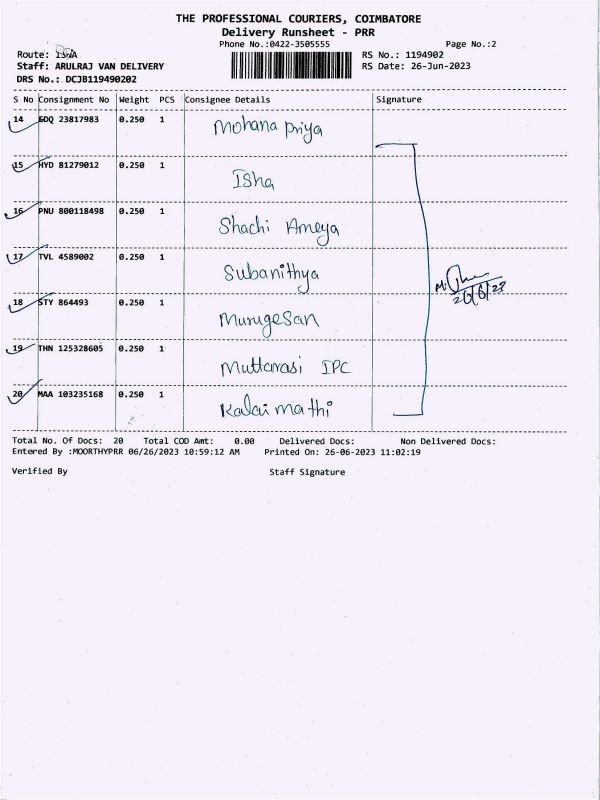 THE PROFESSIONAL COURIERS, COIMBATORE
Delivery Runsheet - PRR
Phone No.:0422-3505555 Page No.:2
Route: ISHA RS No.: 1194902
Staff: ARULRAJ VAN DELIVERY RS Date: 26-Jun-2023
DRS No.: DCJB119490202
S No Consignment No Weight PCS Consignee Details Signature
14 EDQ 23817983 0.250 1 Mohana priya
15 HYD 81279012 0.250 1 Isha
16 PNU 800118498 0.250 1 Shachi Ameya
17 TVL 4589002 0.250 1 Subanithya
18 STY 864493 0.250 1 Murugesan
19 THN 125328605 0.250 1 Muttarasi IPC
20 MAA 103235168 0.250 1 Kalai mathi
26/6/23
Total No. Of Docs: 20 Total COD Amt: 0.00 Delivered Docs: Non Delivered Docs:
Entered By :MOORTHYPRR 06/26/2023 10:59:12 AM Printed On: 26-06-2023 11:02:19
Verified By Staff Signature